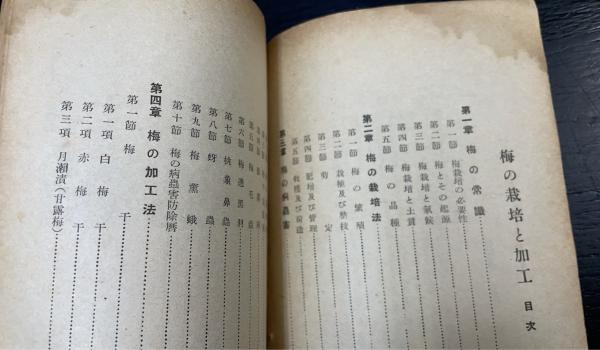 梅の栽培と加工 目次
第一章 梅の常識
第一節 梅栽培の必要性
第二節 梅とその起源
第三節 梅栽培と気候
第四節 梅栽培と土質
第五節 梅の品種
第二章 梅の栽培法
第一節 梅の繁殖
第二節 栽植及び整枝
第三節 剪定
第四節 肥培及び管理
第五節
第三章 梅の病蟲害
第七節 桃象鼻蟲
第八節 蚜蟲
第九節 梅
第十節 梅の病蟲害防除暦
第四章 梅の加工法
第一節 梅干
第一項 白梅干
第二項 赤梅干
第三項 月瀬漬(甘露梅)